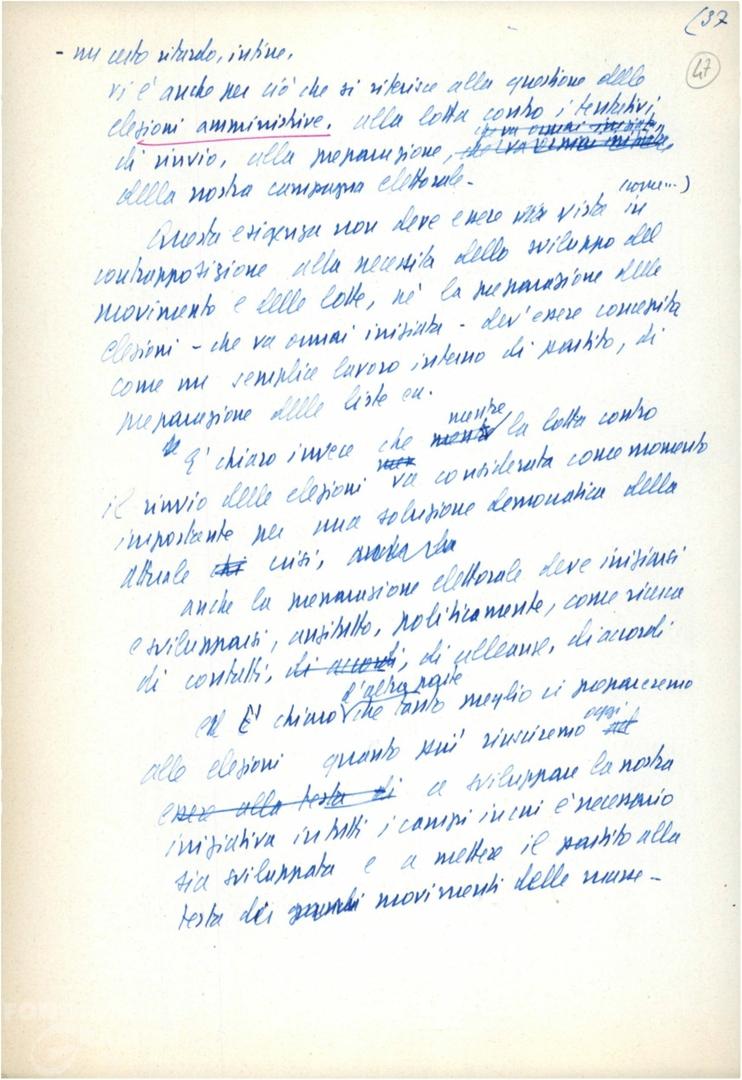 (37
47
- un certo ritardo, infine,
vi è anche per ciò che si riferisce alla questione delle
elezioni amministrive, alla lotta contro i tentativi
che va ormai iniziata,
di rinvio, alla preparazione, che va ormai iniziata,
della nostra campagna elettorale -
(come...)
Questa esigenza non deve essere vista in
contrapposizione alla necessità dello sviluppo del
movimento e delle lotte, nè la preparazione delle
elezioni - che va ormai iniziata - dev'essere concepita
come un semplice lavoro interno di partito, di
preparazione delle liste ecc.
mentre
E' chiaro invece che la lotta contro
il rinvio delle elezioni va considerata come momento
importante per una soluzione democratica della
attuale crisi,
anche la preparazione elettorale deve iniziarsi
e svilupparsi, anzitutto, politicamente, come ricerca
di contatti, di accordi, di alleanze, di accordi
d'altra parte
E' chiaro che tanto meglio ci prepareremo
oggi
alle elezioni quanto più riusciremo
essere alla testa di a sviluppare la nostra
iniziativa in tutti i campi in cui è necessario
sia sviluppata e a mettere il partito alla
testa dei grandi movimenti delle masse -